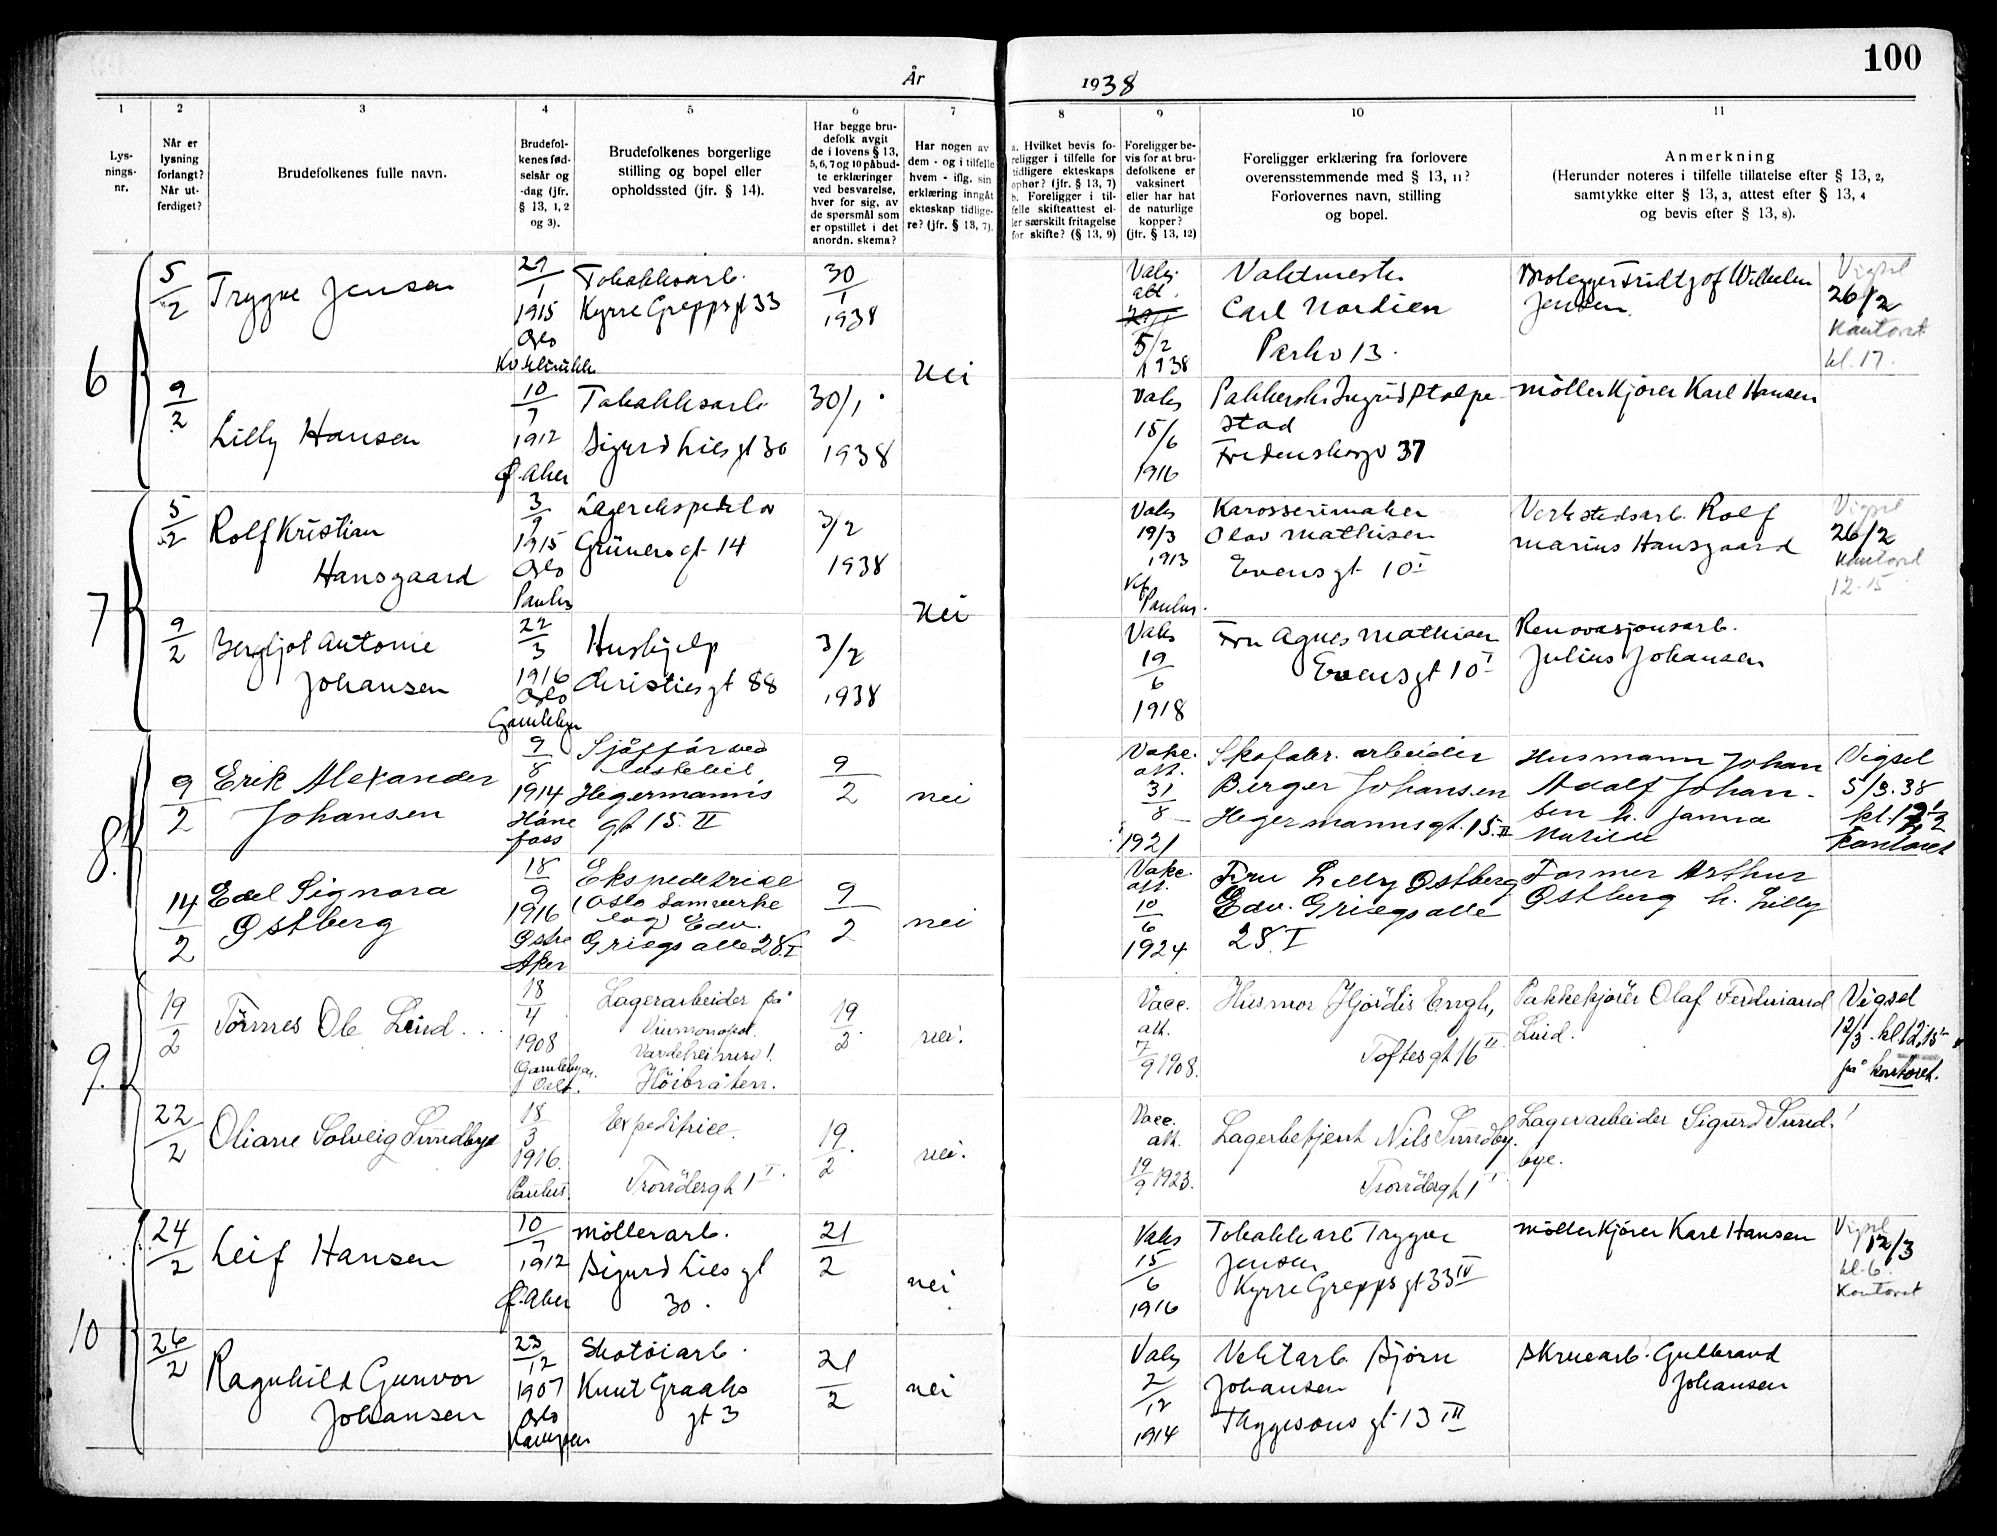 100
År 1938
1 2 3 4 5 6 7 8 9 10 11
Lys-
nings-
nr.
Når er
lysning
forlangt?
Når ut-
ferdiget?
Brudefolkenes fulle navn.
Brudefol-
kenes fød-
selsår og
-dag (jfr.
§ 13, 1, 2
og 3).
Brudefolkenes borgerlige
stilling og bopel eller
opholdssted (jfr. § 14).
Har begge bru-
defolk avgit
de i lovens § 13,
5, 6, 7 og 10 påbud-
te erklæringer
ved besvarelse,
hver for sig, av
de spørsmål som
er opstillet i det
anordn. skema?
Har nogen av
dem - og i tilfelle
hvem - iflg. sin
erklæring inngåt
ekteskap tidlige-
re? (jfr. § 13, 7).
a. Hvilket bevis fo-
religger i tilfelle for
tidligere ekteskaps
ophør? (jfr. § 13, 7)
b. Foreligger i til-
felle skifteattest el-
ler særskilt fritagelse
for skifte? (§ 13, 9)
Foreligger be-
vis for at bru-
defolkene er
vaksinert
eller har hat
de naturlige
kopper?
(jfr. § 13, 12)
Foreligger erklæring fra forlovere
overensstemmende med § 13, 11?
Forlovernes navn, stilling
og bopel.
Anmerkning
(Herunder noteres i tilfelle tillatelse efter § 13, 2,
samtykke efter § 13, 3, attest efter § 13, 4
og bevis efter § 13, 8).
6
5/2
Trygve Jensen
1
1915
Oslo
Tobakksarb.
Kyrre Greppsgt 33
30/1
1938
Nei
Vaks.
att.
5/2
1938
Vaktmester
Carl Nordien
Parkv 13.
Brolegger Fridtjof Wilhelm
Jensen
Vigsel
26/2
Kontoret
kl. 17.
9/2
Lilly Hansen
10/7
1912
Ø. Aker
Tobakksarb.
Sigurd Lies gt 30
30/1
1938
Vaks
15/6
1916
Ingrid Stolpe-
stad
Fredensborgv 37
Møllerkjører Karl Hansen
7
5/2
Rolf Kristian
Hansgaard
3/9
1915
Oslo
Paulus
Lagerekspeditør
Grünersgt 14
3/2
1938
Nei
Vaks
19/3
1913
Paulus.
Karosserimaker
Olav Mathisen
Evensgt 10 I
Verkstedsarb. Rolf
Marius Hansgaard
Vigsel
26/2
Kontoret
12.15
9/2
Bergljot Antonie
Johansen
22/3
1916
Oslo
Gamlebyen
Hushjelp
Christiesgt 88
3/2
1938
Vaks
19/6
1918
Fru Agnes Mathisen
Evensgt 10 I
Renovasjonsarb.
Julius Johansen
8.
9/2
Erik Alexander
Johansen
9/8
1914
Høne
foss
Sjåffør ved
lastebil
Hegermanns
gt 15. II
9/2
nei
Vakc.
att.
31/8
1921
Skofabr. arbeider
Birger Johansen
Hegermannsgt. 15. II
Husmann Johan
Adolf Johan-
sen h. Janna
Matilde
Vigsel
5/3.38
kl. 12½
Kontoret
14/2
Edel Signora
Østberg
18/9
1916
Østre
Aker
Ekspeditrise
(Oslo Samvirke
lag) Edv.
Griegs alle 28. I
9/2
nei
Vakc.
att.
10/6
1924
Fru Lilly Østberg
Edv. Griegs alle
28. I
Former Arthur
Østberg h. Lilly
9.
19/2
Tormes Ole Lund
18/4
1908
Gamlebyen.
Oslo.
Lagerarbeider på
Vinmonopol.
Høibråten.
19/2
nei.
Vacc.
att.
7/9 1908.
Husmor Hjördis Engh,
Toftesgt 16 II
Pakkekjører Olaf Ferdinand
Lund.
Vigsel
12/3. kl 12,15
på kontoret.
22/2
Oliane Solveig Sundbye
18/3
1916.
Paulus.
Expeditrice.
Tromsögt 1 I
19/2
nei.
Vacc.
att.
19/9 1923.
Lagerbetjent Nils Sundby.
Tromsögt 1 I
Lagerarbeider Sigurd Sund-
bye.
10
24/2
Leif Hansen
10/7
1912
Ø. Aker
Møllerarb.
Sigurd Lies gt
30.
21/2
nei
Vaks
15/6
1916
Tobakkarb Trygve
Jensen
Kyrre Greppsgt 33 IV
Møllerkjører Karl Hansen
Vigsel
12/3
kl. 6
Kontoret
26/2
Ragnhild Gunvor
Johansen
23/12
1907
Oslo
Kampen
Skotøiarb.
Knut Graahs
gt 3
21/2
nei
Vaks
2/12
1914
Vektarb. Bjørn
Johansen
Thygesons gt 13 III
Skruearb. Gulbrand
Johansen